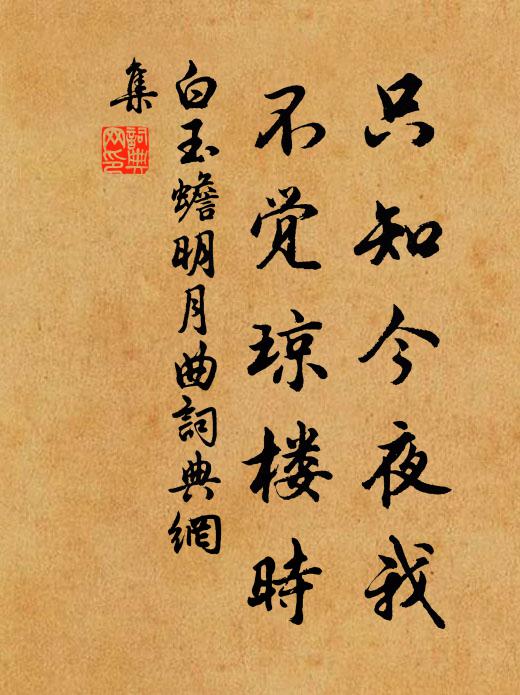 只知今夜我
不觉琼楼時
白玉蟾明月曲詞典網
集
詞典网印